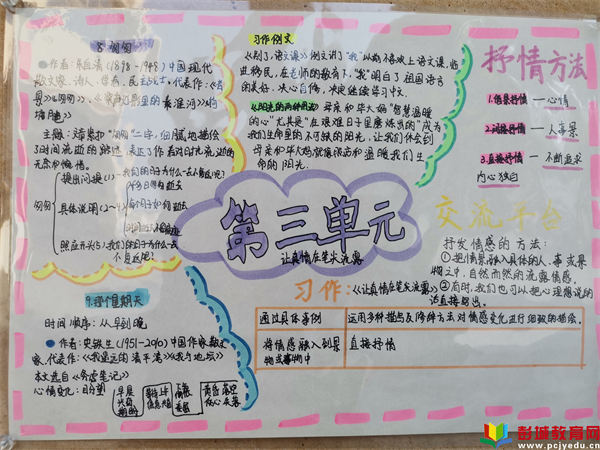 8.匆匆
作者:朱自清(1898-1948)中国现代
散文家、诗人、学者、民主战士,代表作:《背
影》《匆匆》、《桨声灯影里的秦淮河》《荷
塘月色》
主题:紧紧扣"匆匆"二字,细腻地描绘
了时间流逝的踪迹,表达了作者对时光流逝的
无奈和惋惜。
匆匆
提出问题(1):我们的日子为什么一去不复返呢?
具体说明(2~4)
照应开头(5):我们的日子为什么一去不
复返呢?
9.那个星期天
时间顺序:从早到晚
作者:史铁生(1951-2010)中国作家、散文
家,代表作:《我的遥远的清平湾》《我与地坛》
本文选自《务虚笔记》
心情变化:盼望
早晨
兴奋
期盼
习作例文
《别了,语文课》例文讲了"我"以前不喜欢上语文课,临
近移民,在老师的教育下,"我"明白了祖国语言
的美好,决心自修,决定继续学习中文。
《阳光的两种用法》母亲和毕大妈"智慧温暖
的心"尤其是"在艰难日子里磨炼出的"成为
我们生命里的不可缺的阳光,让我们体会到
母亲和毕大妈就像很活和温暖我们生
命的阳光。
第三单元
让真情在笔尖流露
抒情方法
1.借景抒情—心情
2.间接抒情—人事景
3.直接抒情—不断追求
内心独白
交流平台
抒发情感的方法:
①把情感融入具体的人、事或景
物之中,自然而然的流露情感,
②有时,我们也可以把心理想说的
话直接写出。
习作:《让真情在笔尖流露》
通过具体事例
运用多种描写反复等方法对情感变化进行细致的描绘。
将情感融入到景
物或事物中
直接抒情
彭城教育网
www.pcjyedu.cn